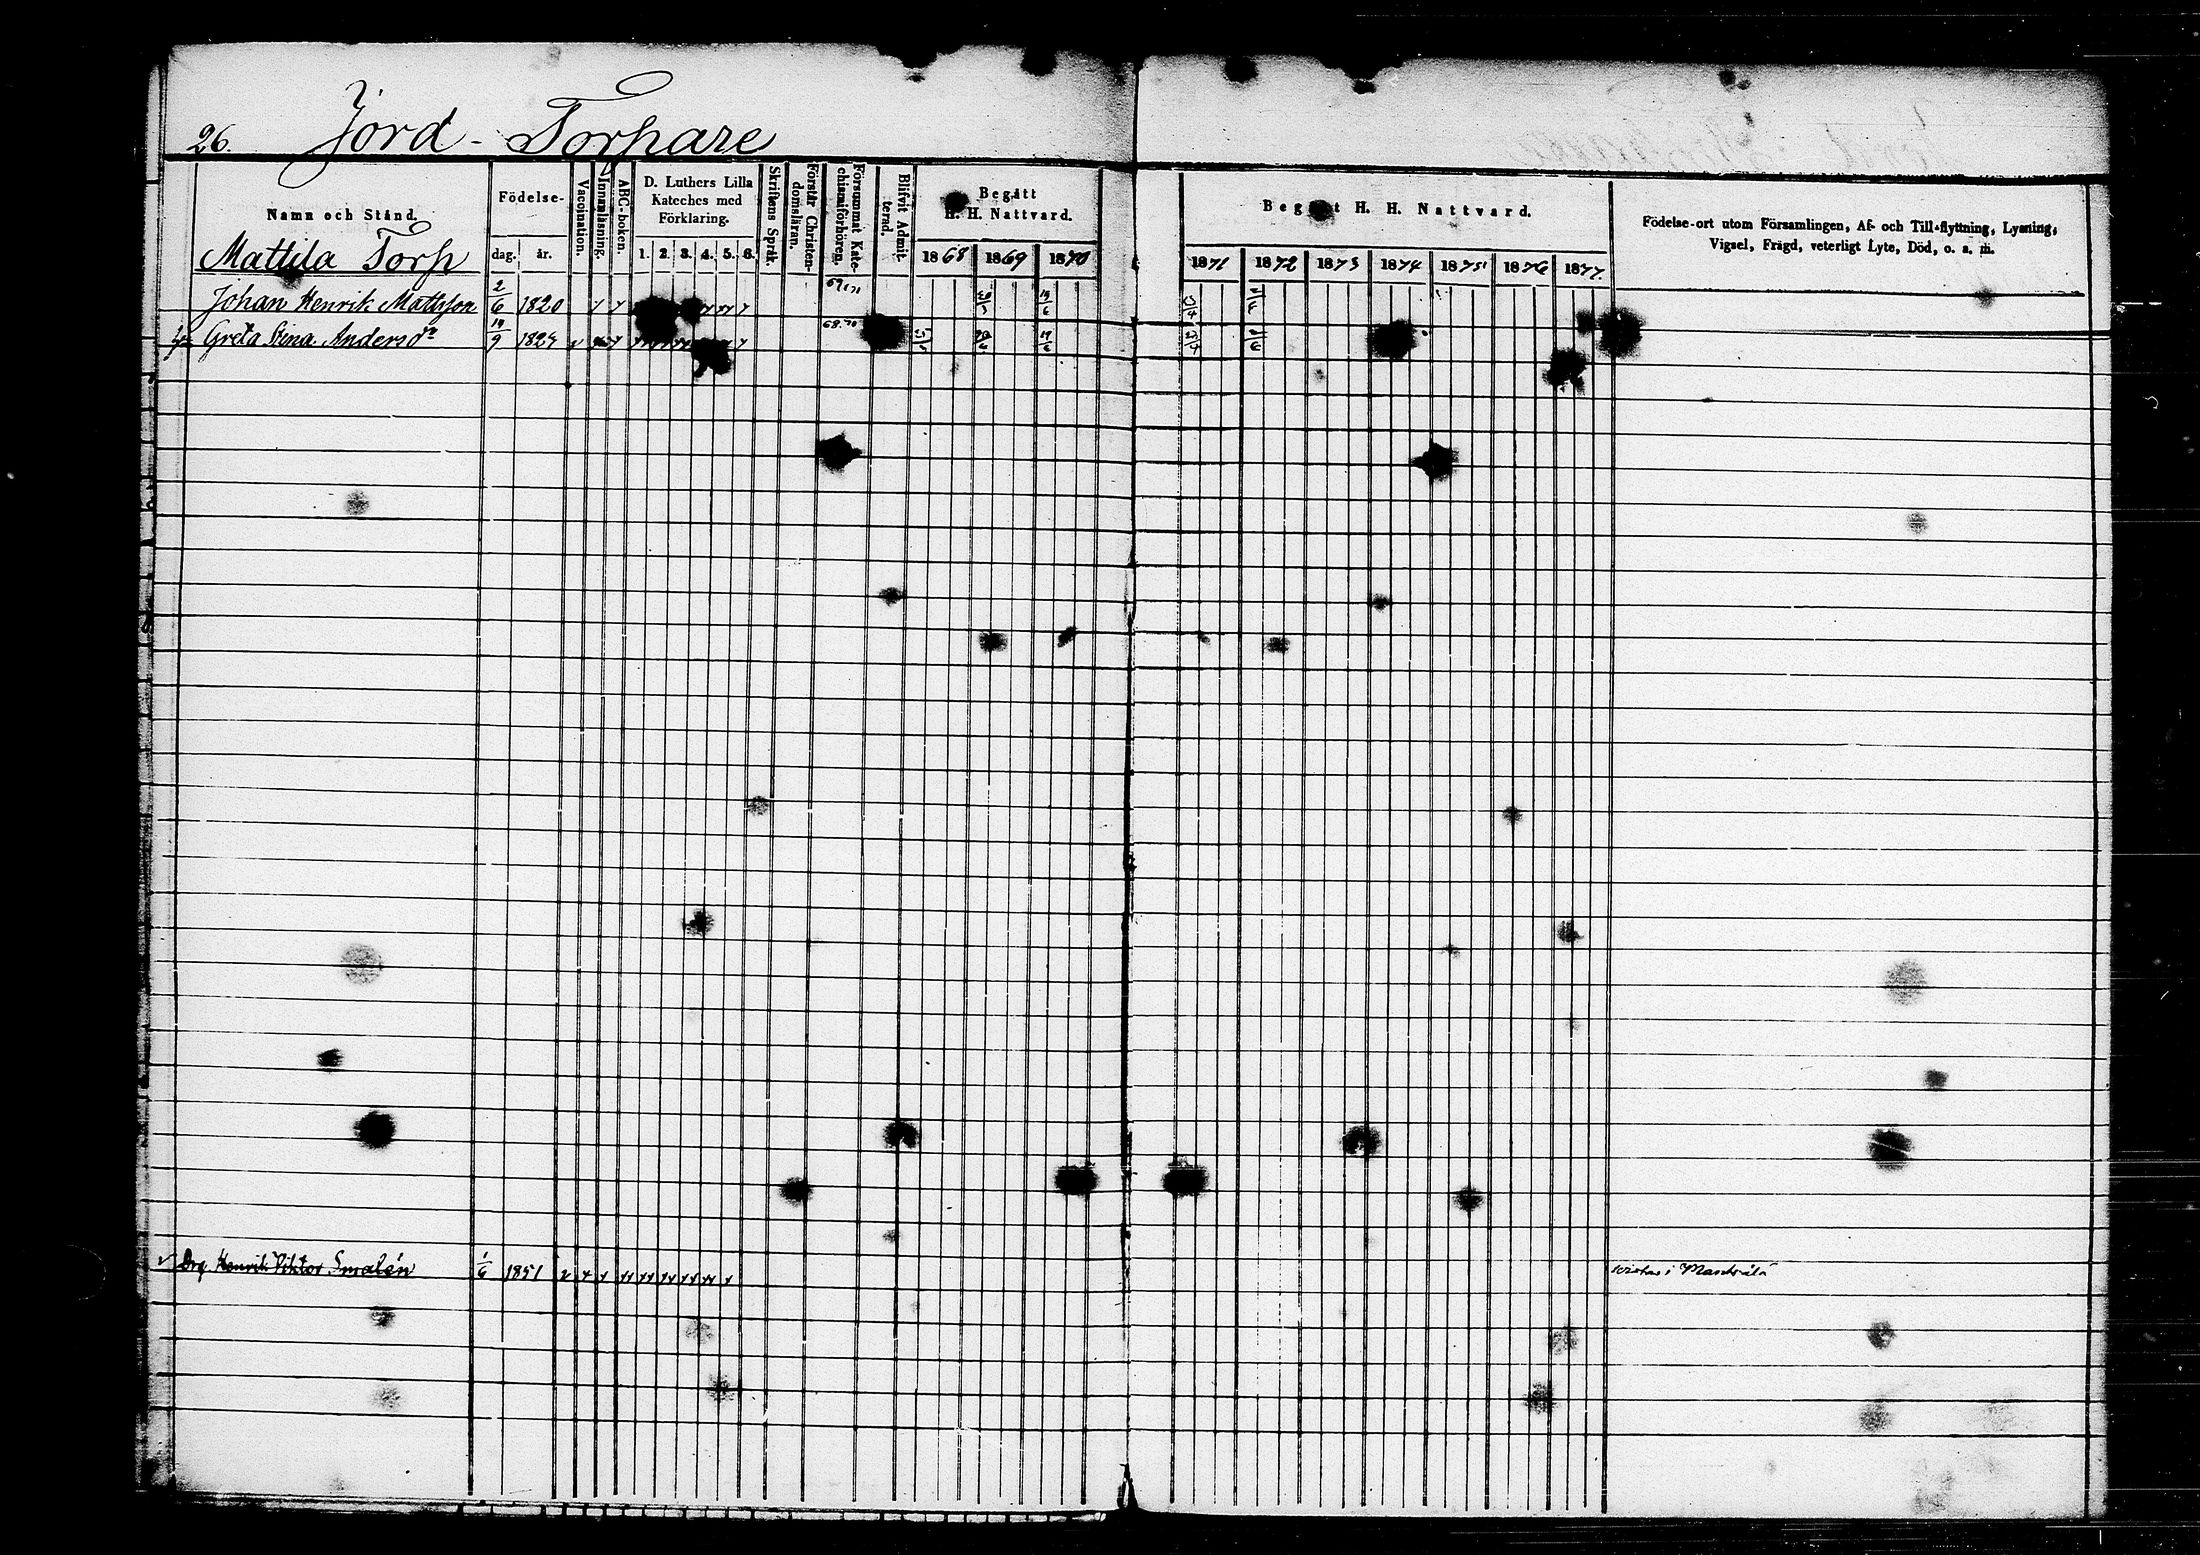 26. Jord - Torpare
Namn och Stånd.
Födelse-
dag. år.
Vaccination.
Innanläsning.
ABC-boken.
D. Luthers Lilla
Kateches med
Förklaring.
1. 2. 3. 4. 5. 6.
Skriftens Språk.
Förstår Christen-
domsläran.
Försummat Kate-
chismiförhören.
Blifvit Admit-
terad.
Begått
H. H. Nattvard.
1868 1869 1870
Begått H. H. Nattvard.
1871 1872 1873 1874 1875 1876 1877.
Födelse-ort utom Församlingen, Af- och Till-flyttning, Lysning,
Vigsel, Frägd, veterligt Lyte, Död, o. a. m.
Mattila Torp
Johan Henrik Mattsson 2/6 1820
Greta Stina Andersdr 19/9 1824 68.70
Drg. Henrik Viktor Smalén 1/6 1851